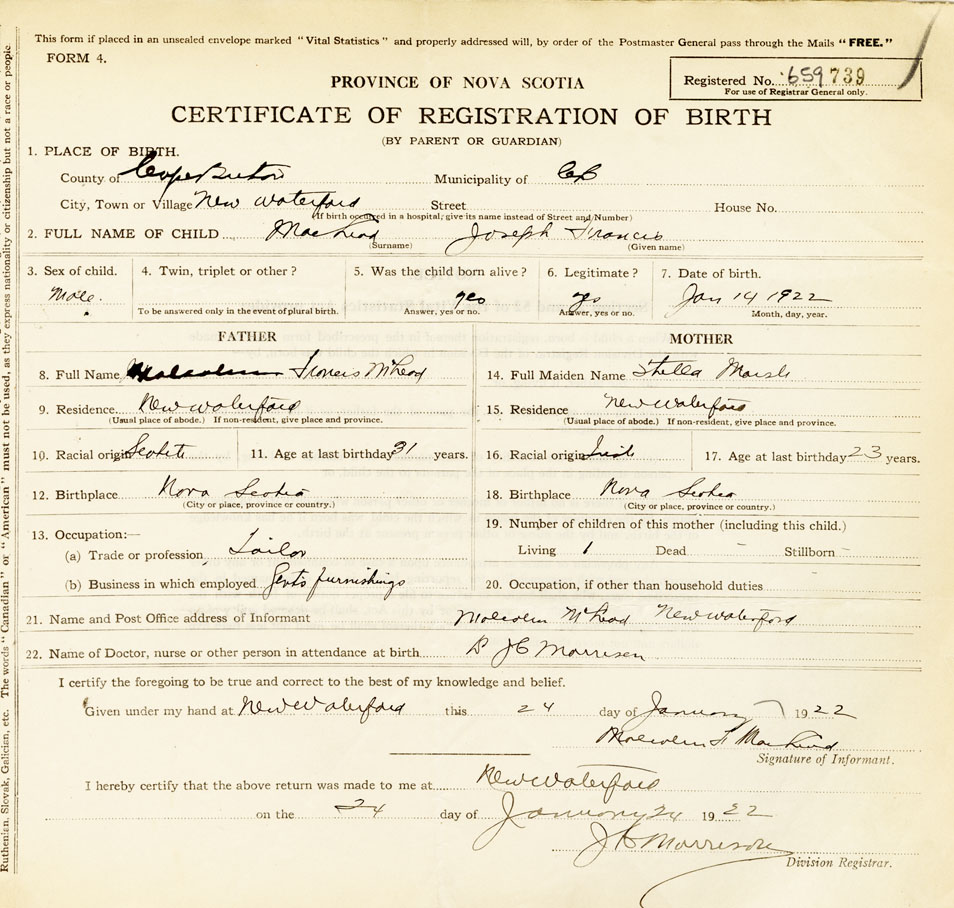 This form if placed in an unsealed envelope marked "Vital Statistics" and properly addressed will, by order of the Postmaster General pass through the Mails "FREE."
FORM 4.
Registered No. 659739
For use of Registrar General only.
PROVINCE OF NOVA SCOTIA
CERTIFICATE OF REGISTRATION OF BIRTH
(BY PARENT OR GUARDIAN)
1. PLACE OF BIRTH.
County of Cape Breton Municipality of CB
City, Town or Village New Waterford Street House No.
(If birth occurred in a hospital, give its name instead of Street and Number)
2. FULL NAME OF CHILD MacLeod Joseph Francis
(Surname) (Given name)
3. Sex of child. 4. Twin, triplet or other? 5. Was the child born alive? 6. Legitimate? 7. Date of birth.
Male. yes yes Jan 14 1922
To be answered only in the event of plural birth. Answer, yes or no. Answer, yes or no. Month, day, year.
FATHER MOTHER
8. Full Name Malcolm Francis McLeod 14. Full Maiden Name Stella Marsh
9. Residence New Waterford 15. Residence New Waterford
(Usual place of abode.) If non-resident, give place and province. (Usual place of abode.) If non-resident, give place and province.
10. Racial origin 11. Age at last birthday 31 years. 16. Racial origin Irish 17. Age at last birthday 23 years.
12. Birthplace Nova Scotia 18. Birthplace Nova Scotia
(City or place, province or country.) (City or place, province or country.)
13. Occupation:— 19. Number of children of this mother (including this child.)
(a) Trade or profession Tailor Living 1 Dead – Stillborn –
(b) Business in which employed Gents furnishings 20. Occupation, if other than household duties
21. Name and Post Office address of Informant Malcolm McLeod New Waterford
22. Name of Doctor, nurse or other person in attendance at birth Morrison
I certify the foregoing to be true and correct to the best of my knowledge and belief.
Given under my hand at New Waterford this 24 day of January 1922
Malcolm F MacLeod
Signature of Informant.
I hereby certify that the above return was made to me at New Waterford
on the 24 day of January 24 1922
Morrison
Division Registrar.
Ruthenian, Slovak, Galician, etc. The words "Canadian" or "American" must not be used, as they express nationality or citizenship but not a race or people.